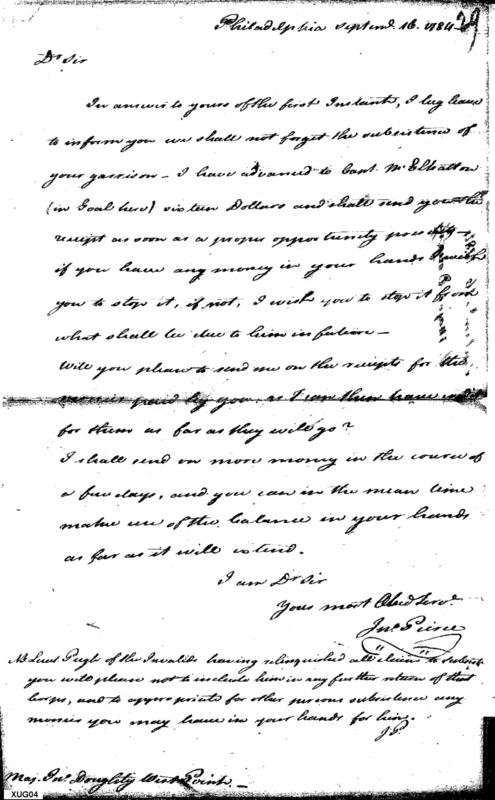 Philadelphia Septemr. 16. 1784
29
Dr Sir
In answer to yours of the first Instant, I beg leave
to inform you we shall not forget the subsistence of
your garrison – I have advanced to Capt. McElhatton
(in Goal here) sixteen Dollars and shall send you the
receipt as soon as a proper opportunity presents –
if you have any money in your hands I wish
you to stop it, if not, I wish you to stop it from
what shall be due to him in future –
Will you please to send me on the receipts for the
monies paid by you, as I can then have credit
for them as far as they will go?
I shall send on more money in the course of
a few days, and you can in the mean time
make use of the balance in your hands
as far as it will extend.
I am Dr Sir
Your most Obed Servt.
Jno. Pierce
NB Lieut Pugh of the Invalids having relinquished all claim to subsist
you will please not to include him in any further return of that
Corps, and to appropriate for other persons subsistence any
monies you may have in your hands for him.
J P
Maj. Jno. Doughty West Point.
XUG04